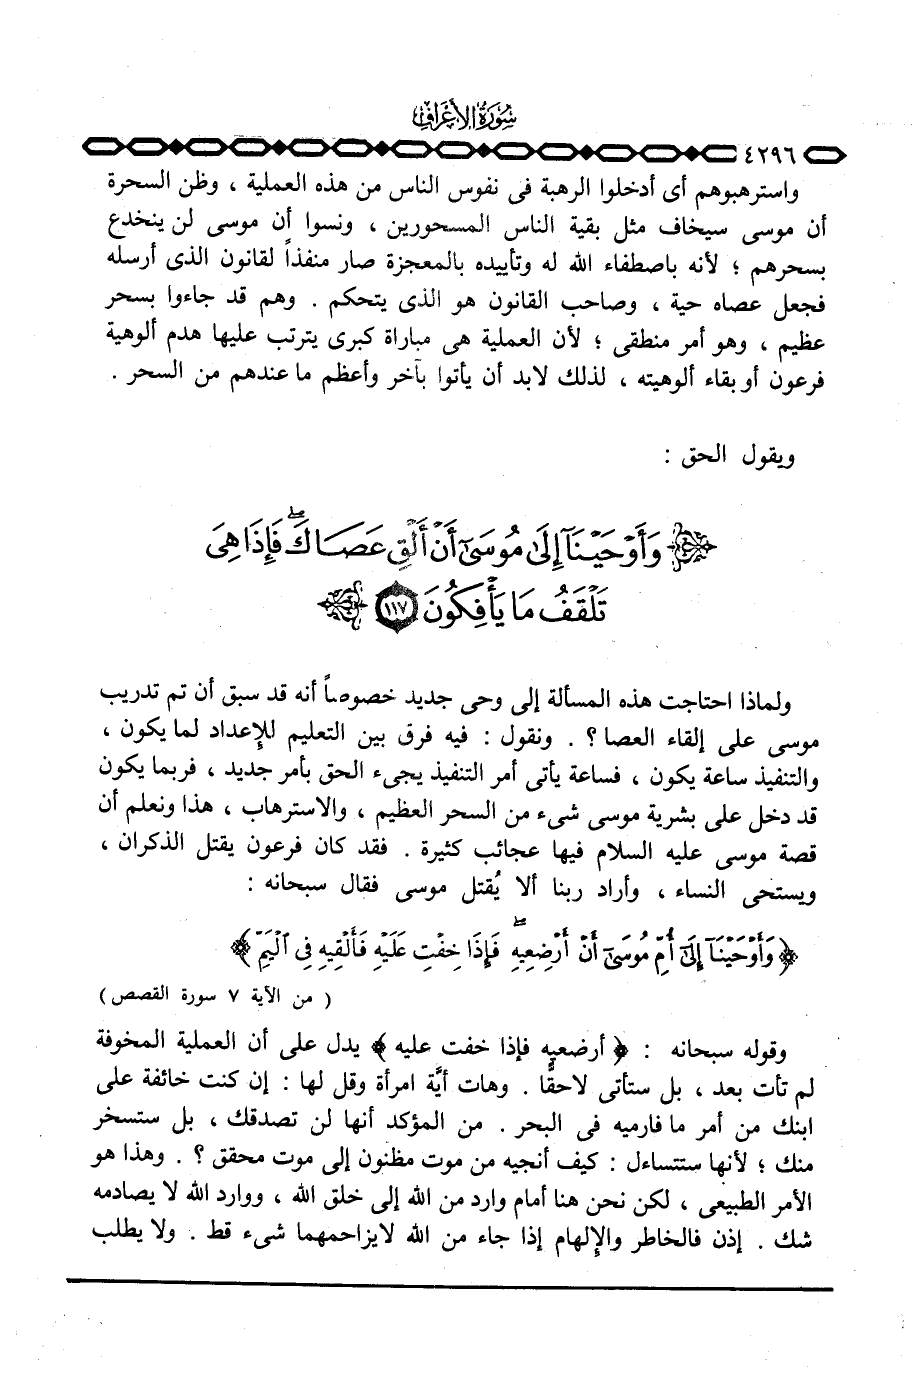 سُورَةُ الأَعْرَافِ
٤٢٩٦
واسترهبوهم أى أدخلوا الرهبة فى نفوس الناس من هذه العملية ، وظن السحرة
أن موسى سيخاف مثل بقية الناس المسحورين ، ونسوا أن موسى لن ينخدع
بسحرهم ؛ لأنه باصطفاء الله له وتأييده بالمعجزة صار منفذاً لقانون الذى أرسله
فجعل عصاه حية ، وصاحب القانون هو الذى يتحكم . وهم قد جاءوا بسحر
عظيم ، وهو أمر منطقى ؛ لأن العملية هى مباراة كبرى يترتب عليها هدم ألوهية
فرعون أو بقاء ألوهيته ، لذلك لابد أن يأتوا بآخر وأعظم ما عندهم من السحر .
ويقول الحق :
وَأَوْحَيْنَآ إِلَىٰ مُوسَىٰٓ أَنْ أَلْقِ عَصَاكَ ۖ فَإِذَا هِىَ
تَلْقَفُ مَا يَأْفِكُونَ ١١٧
ولماذا احتاجت هذه المسألة إلى وحى جديد خصوصاً أنه قد سبق أن تم تدريب
موسى على إلقاء العصا ؟ . ونقول : فيه فرق بين التعليم للإعداد لما يكون ،
والتنفيذ ساعة يكون ، فساعة يأتى أمر التنفيذ يجىء الحق بأمر جديد ، فربما يكون
قد دخل على بشرية موسى شىء من السحر العظيم ، والاسترهاب ، هذا ونعلم أن
قصة موسى عليه السلام فيها عجائب كثيرة . فقد كان فرعون يقتل الذكران ،
ويستحى النساء ، وأراد ربنا ألا يُقتل موسى فقال سبحانه :
﴿ وَأَوْحَيْنَآ إِلَىٰٓ أُمِّ مُوسَىٰٓ أَنْ أَرْضِعِيهِ ۖ فَإِذَا خِفْتِ عَلَيْهِ فَأَلْقِيهِ فِى ٱلْيَمِّ ﴾
( من الآية ٧ سورة القصص )
وقوله سبحانه : ﴿ أرضعيه فإذا خفت عليه ﴾ يدل على أن العملية المخوفة
لم تأت بعد ، بل ستأتى لاحقًّا . وهات أيَّة امرأة وقل لها : إن كنت خائفة على
ابنك من أمر ما فارميه فى البحر . من المؤكد أنها لن تصدقك ، بل ستسخر
منك ؛ لأنها ستتساءل : كيف أنجيه من موت مظنون إلى موت محقق ؟ . وهذا هو
الأمر الطبيعى ، لكن نحن هنا أمام وارد من الله إلى خلق الله ، ووارد الله لا يصادمه
شك . إذن فالخاطر والإلهام إذا جاء من الله لايزاحمهما شىء قط . ولا يطلب